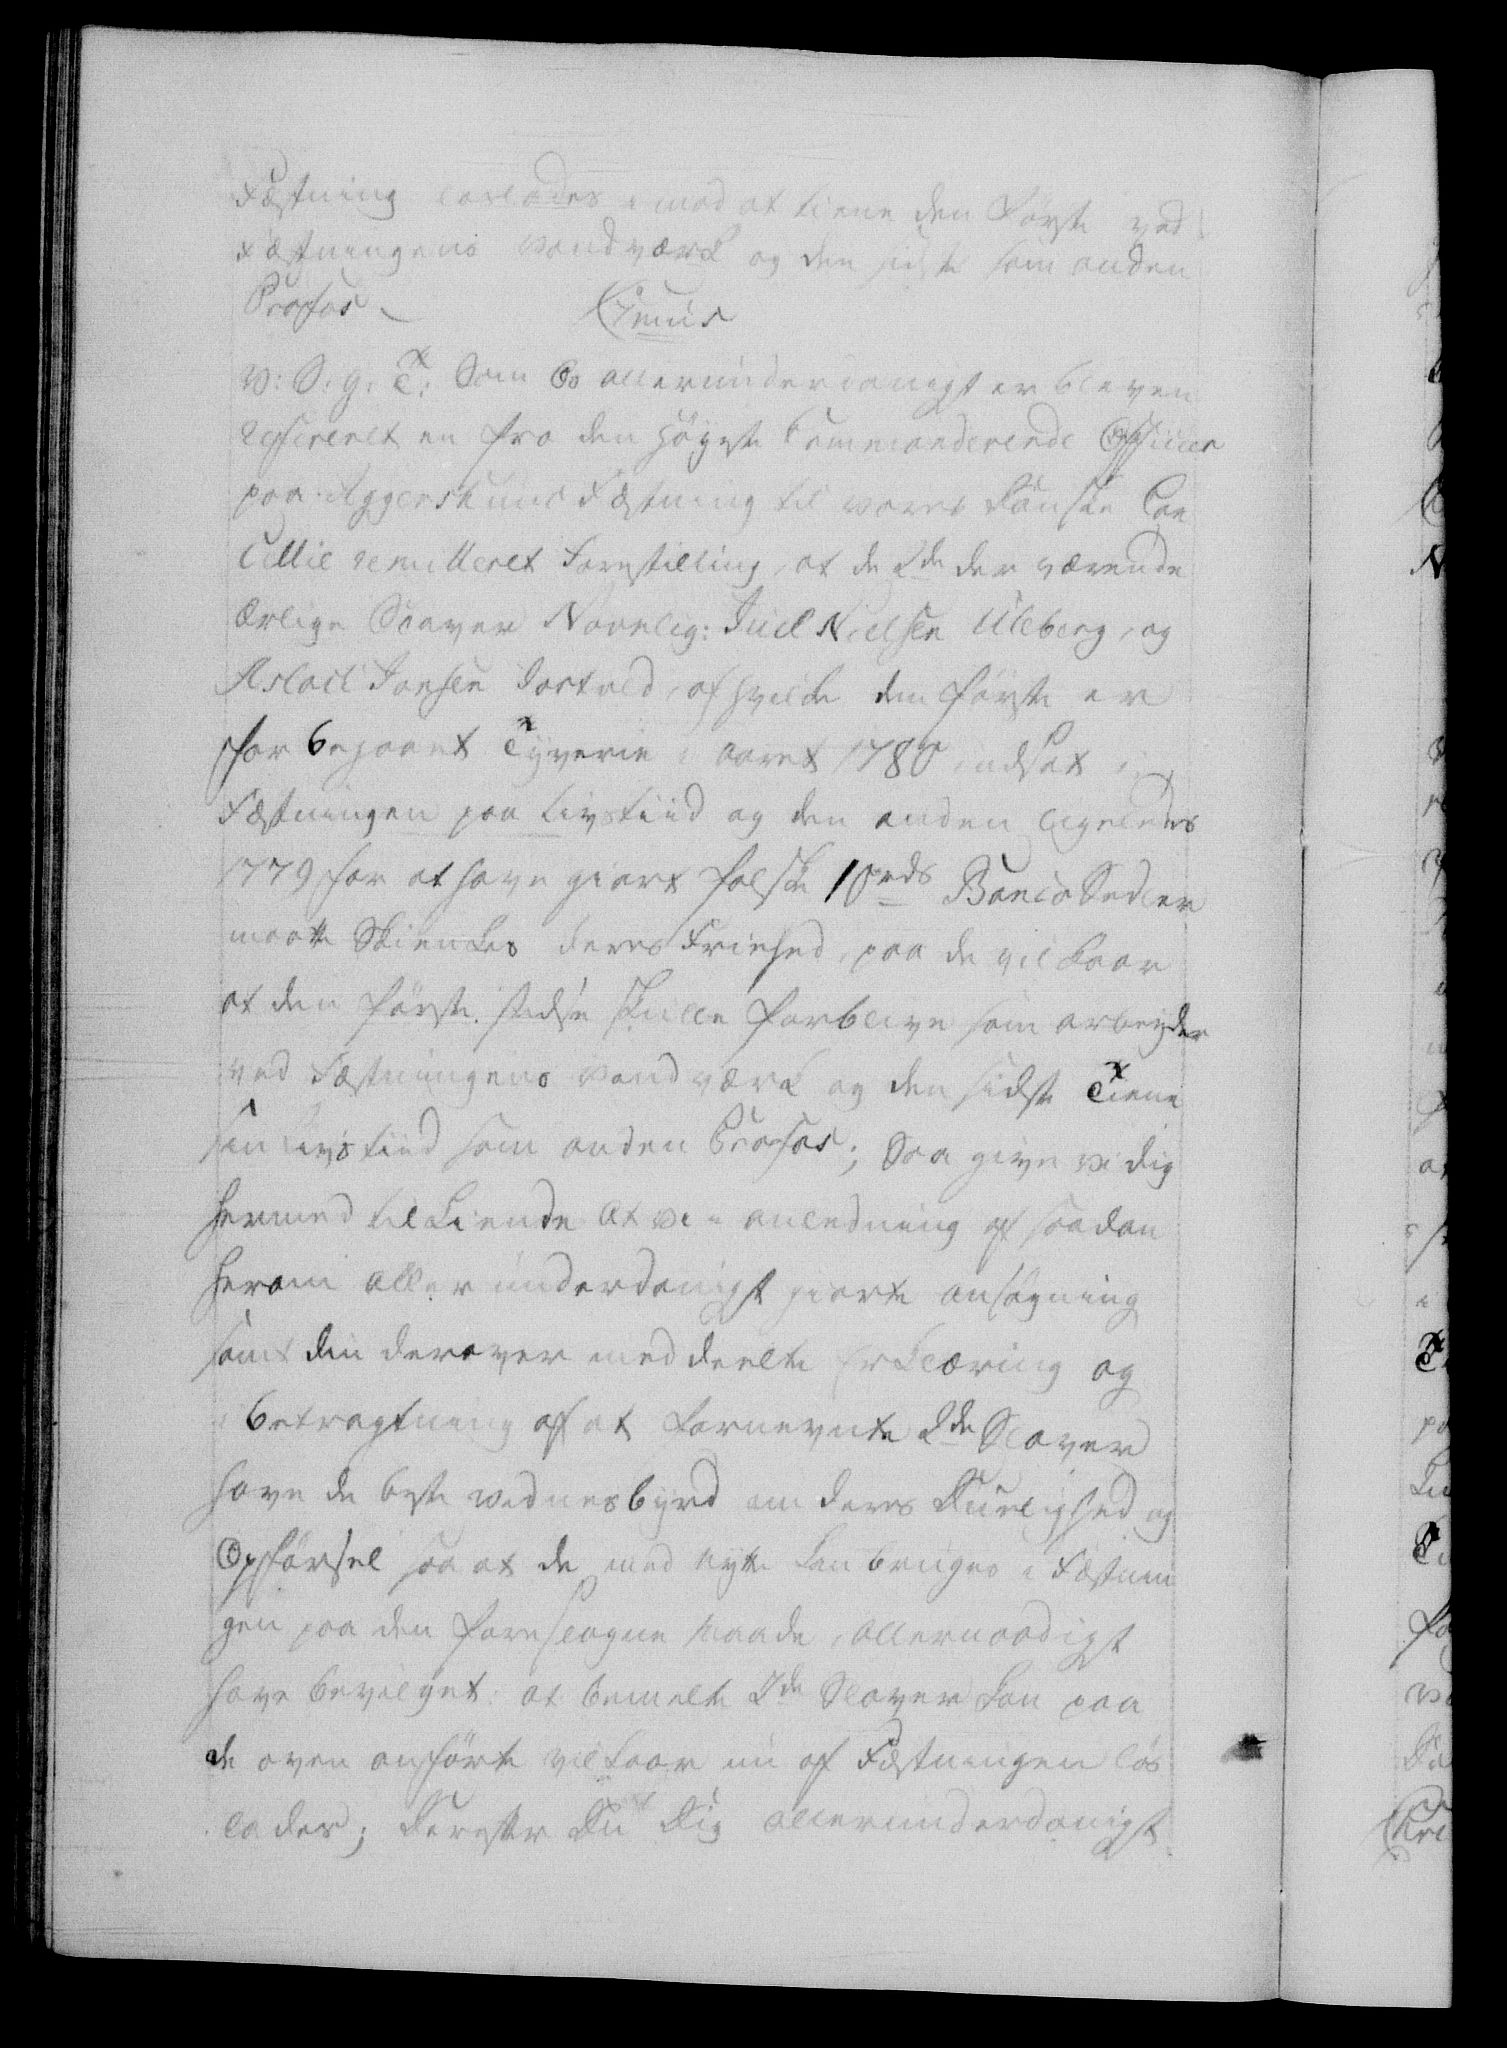 Fæstning løslades imod at tiene den første ved
Fæstningens Vandværk og den sidste som anden
Profos.
V: S: G: T: Som Os allerunderdanigst er bleven
refereret en fra den høyste Commanderende Officier
paa Aggershuus Fæstning til vores Danske Can
cellie remitteret Forestilling, at de 2de der værende
ærlige Slaver Navnlig: Juel Nielsen Uleberg, og
Aslach Jonsen Jortvld, af hvilke den første er
for begaaet Tyverie i aaret 1780 indsat i
Fæstningen paa Livstiid og den anden ligeledes
1779 for at have giort falske 10 rds Banco Sedler
maatte Skienkes deres Friehed, paa de vilkaar
at den første stedse skulle forblive som arbeyder
ved Fæstningens Vandværk og den sidste Tiene
sin Livstiid som anden Profos; Saa give vi dig
hermed tilkiende At vi i anledning af saadan
herom allerunderdanigst giorte ansøgning
samt din derover meddeelte Erklæring og
i betragtning af at fornevnte 2de Slaver
have de beste vidnesbyrd om deres Duelighed og
Opførsel saa at de med nytte kan bruges i Fæstnin
gen paa den foreslagne Maade, allernaadigst
have bevilget: at bemelte 2de Slaver kan paa
de oven anførte vilkaar nu af Fæstningen løs
lades; Derefter Du Dig allerunderdanigst